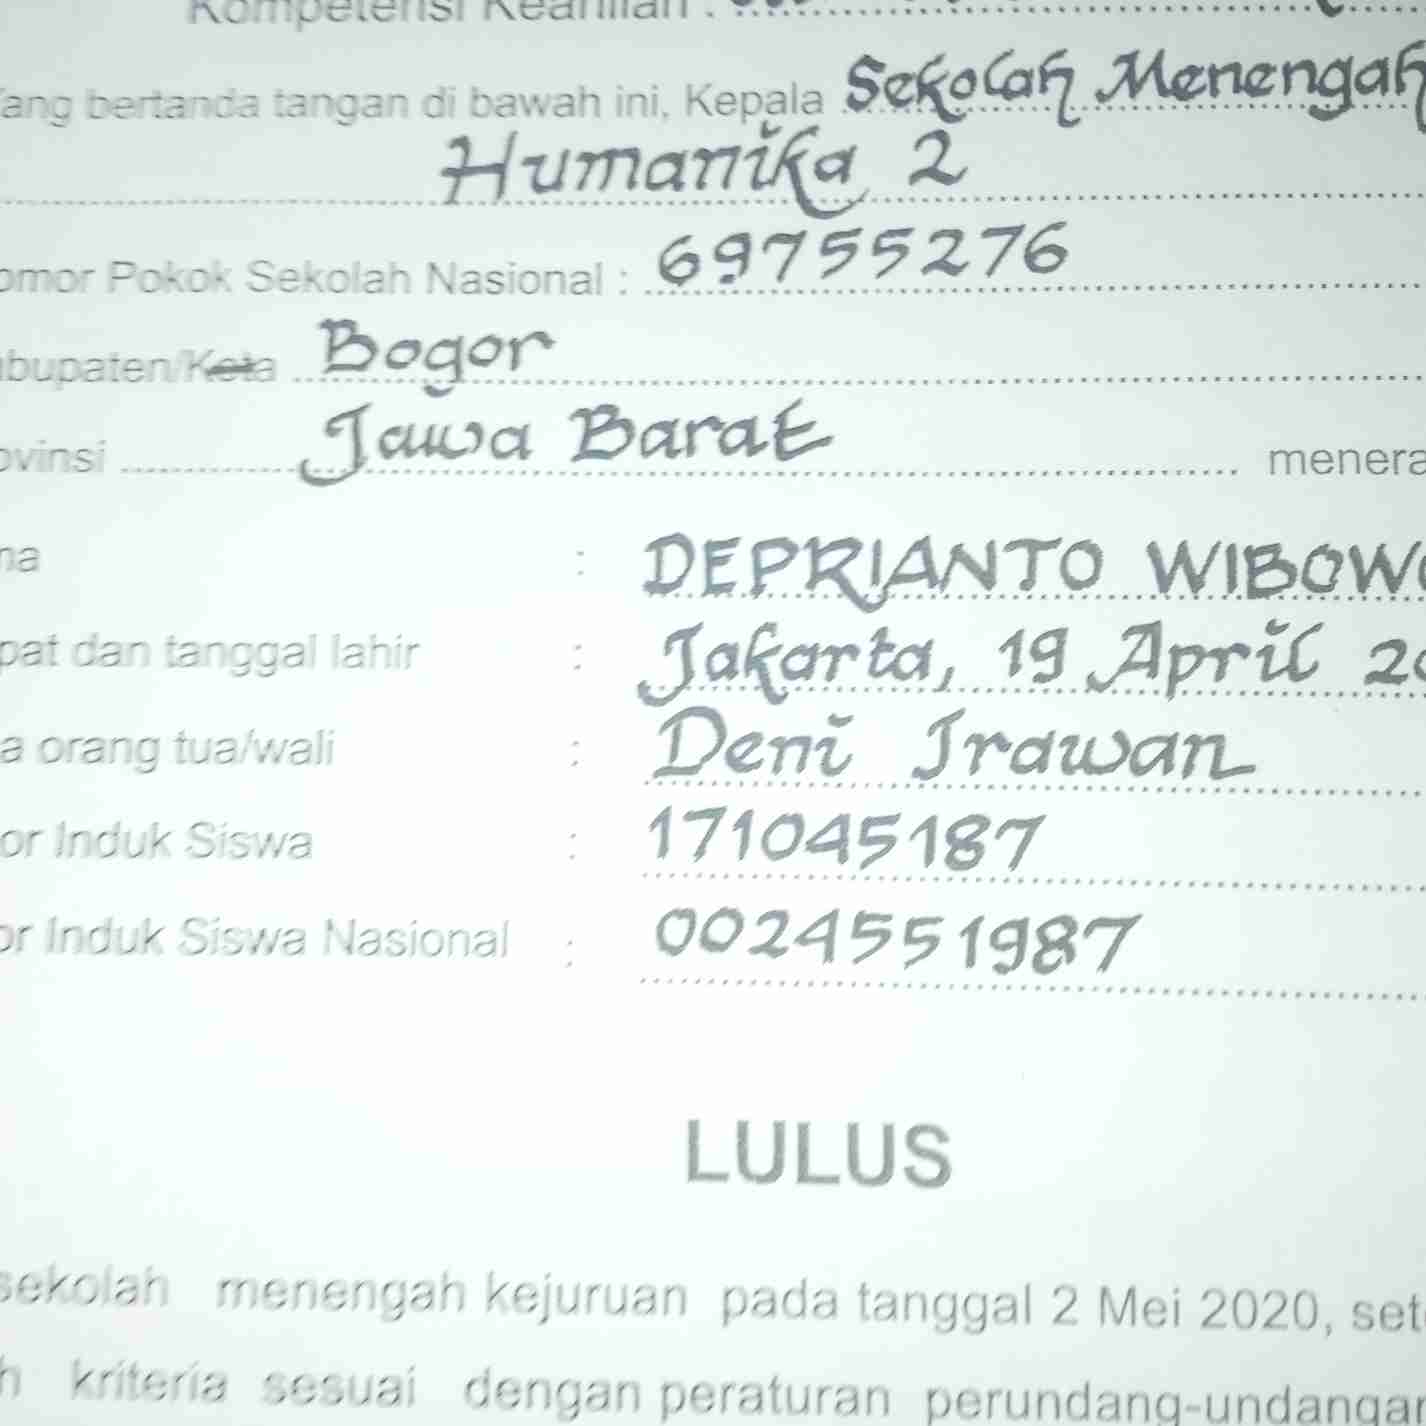 Kompetensi Keahlian :
Yang bertanda tangan di bawah ini, Kepala Sekolah Menengah
Humanika 2
omor Pokok Sekolah Nasional : 69755276
abupaten/Kota Bogor
ovinsi Jawa Barat menera
ma : DEPRIANTO WIBOWO
pat dan tanggal lahir : Jakarta, 19 April 20
a orang tua/wali : Deni Irawan
or Induk Siswa : 171045187
or Induk Siswa Nasional : 0024551987
LULUS
sekolah menengah kejuruan pada tanggal 2 Mei 2020, sete
h kriteria sesuai dengan peraturan perundang-undangan